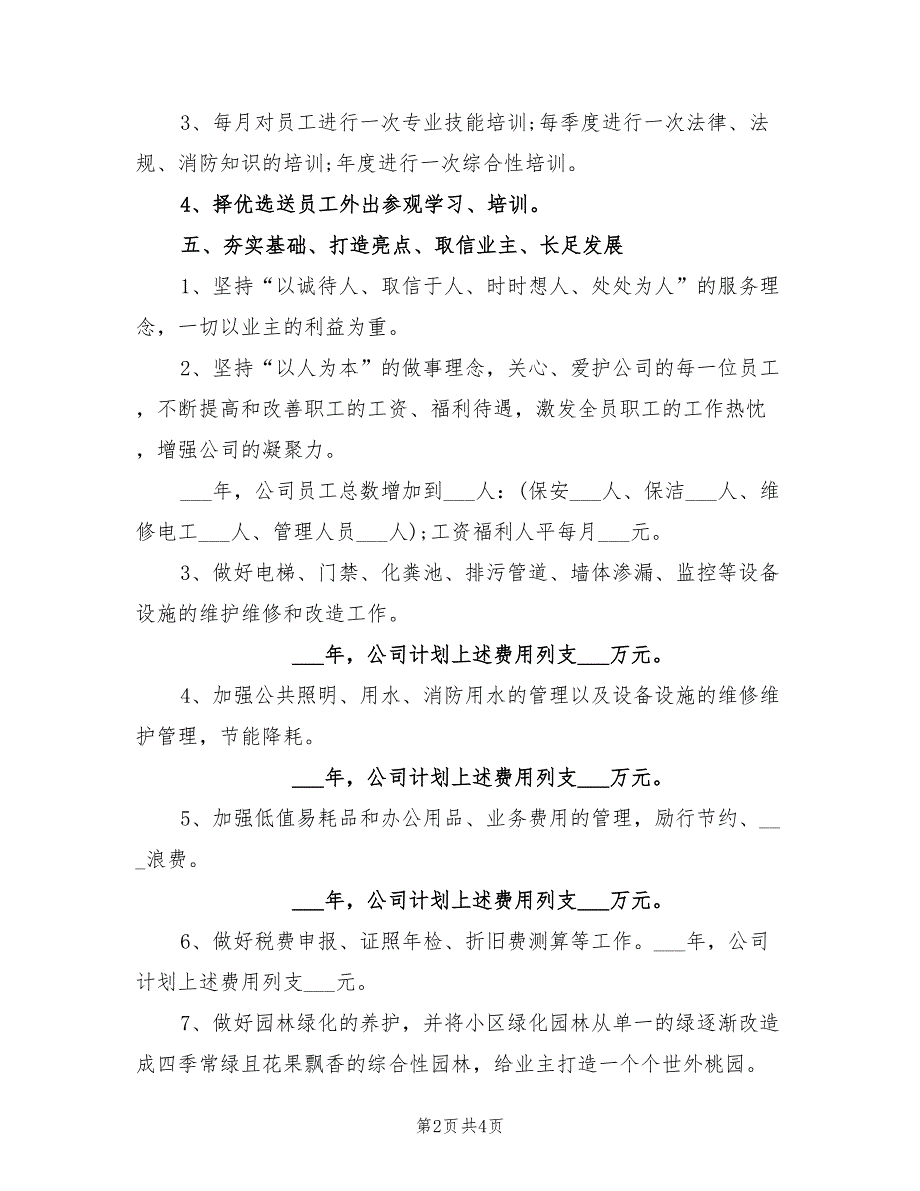 3、每月对员工进行一次专业技能培训;每季度进行一次法律、法
规、消防知识的培训;年度进行一次综合性培训。
4、择优选送员工外出参观学习、培训。
五、夯实基础、打造亮点、取信业主、长足发展
1、坚持“以诚待人、取信于人、时时想人、处处为人”的服务理
念，一切以业主的利益为重。
2、坚持“以人为本”的做事理念，关心、爱护公司的每一位员工
，不断提高和改善职工的工资、福利待遇，激发全员职工的工作热忱
，增强公司的凝聚力。
___年，公司员工总数增加到___人：(保安___人、保洁___人、维
修电工___人、管理人员___人);工资福利人平每月___元。
3、做好电梯、门禁、化粪池、排污管道、墙体渗漏、监控等设备
设施的维护维修和改造工作。
___年，公司计划上述费用列支___万元。
4、加强公共照明、用水、消防用水的管理以及设备设施的维修维
护管理，节能降耗。
___年，公司计划上述费用列支___万元。
5、加强低值易耗品和办公用品、业务费用的管理，励行节约、__
_浪费。
___年，公司计划上述费用列支___万元。
6、做好税费申报、证照年检、折旧费测算等工作。___年，公司
计划上述费用列支___元。
7、做好园林绿化的养护，并将小区绿化园林从单一的绿逐渐改造
成四季常绿且花果飘香的综合性园林，给业主打造一个个世外桃园。
第2页共4页